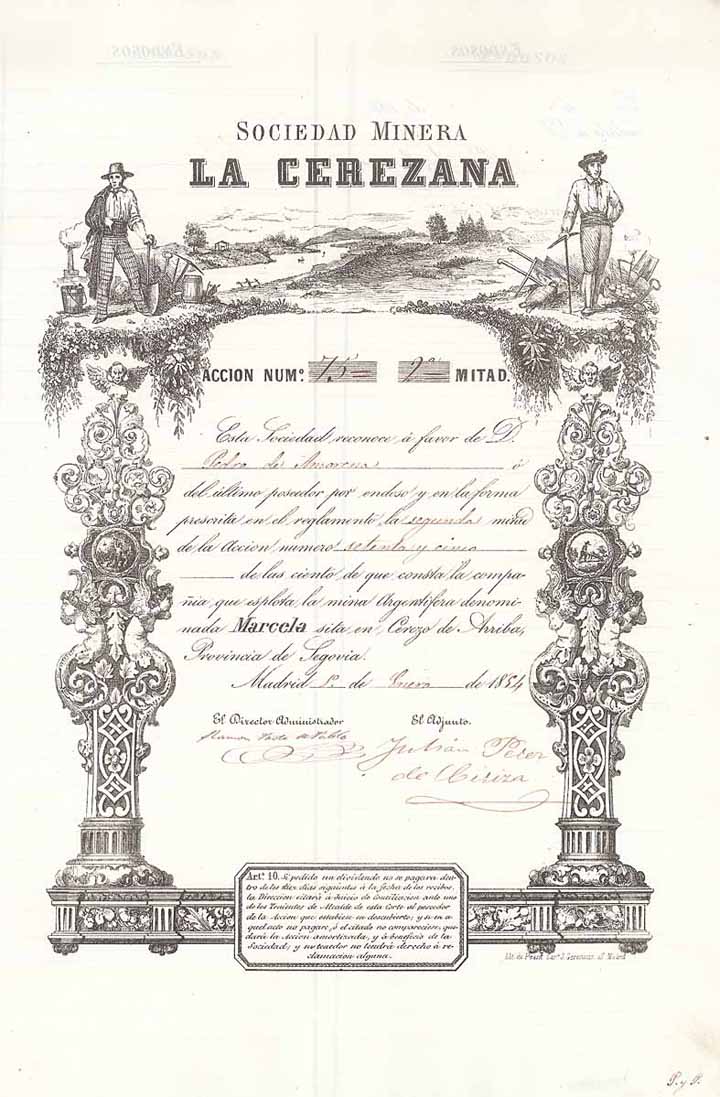 SOCIEDAD MINERA
LA CEREZANA
ACCION NUMº. 75 2ª MITAD.
Esta Sociedad reconoce á favor de D.
Pedro de ó
del último poseedor por endoso y en la forma
prescrita en el reglamento, la segunda mitad
de la Accion numero setenta y cinco
de las ciento de que consta la compa-
ñia que esplota la mina Argentifera denomi-
nada Marcela sita en Cerezo de Arriba,
Provincia de Segovia.
Madrid 1º de Enero de 1854
El Director Administrador El Adjunto.
Ramon de Pablo Julián Perez
de
Artº. 10. Si pedido un dividendo no se pagara den-
tro de los diez dias siguientes á la fecha de los recibos,
la Direccion citará á Juicio de Conciliacion ante uno
de los Tenientes de Alcalde de esta Corte al poseedor
de la Accion que estubiere en descubierto; y si en a
quel acto no pagare, ó el citado no compareciere, que-
dará la Accion amortizada, y á beneficio de la
Sociedad; y no tenedor no tendrá derecho á re-
clamacion alguna.
Lit. de
P. y P.